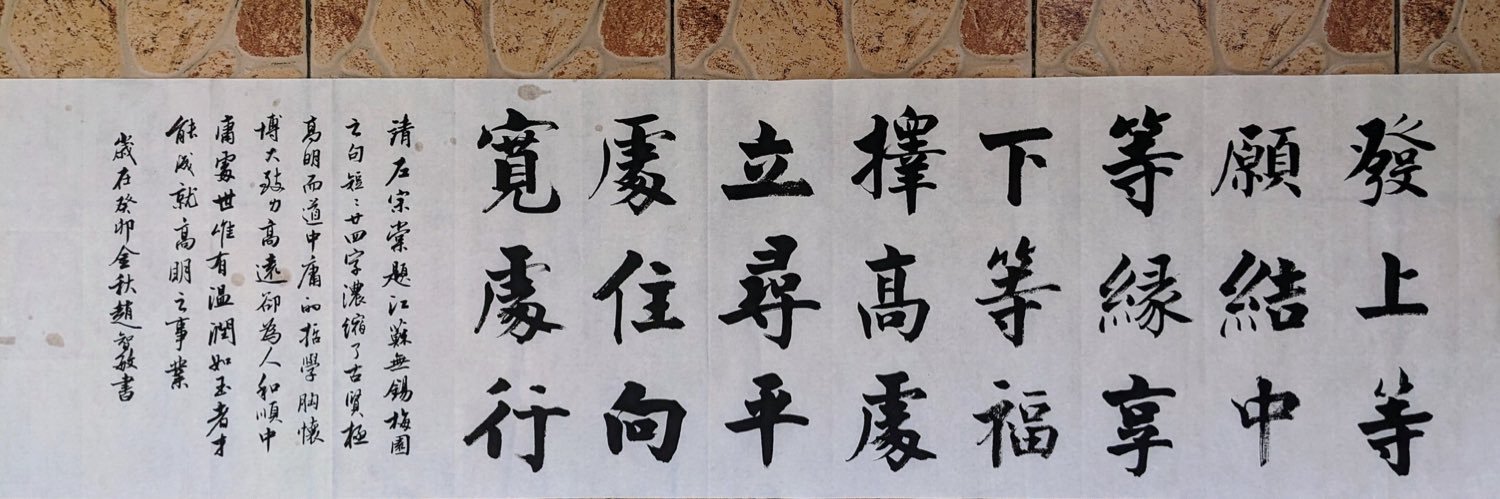 發上等
願結中
等緣享
下等福
擇高處
立尋平
處住向
寬處行
請左宗棠題江蘇無錫梅園
之句短〻廿四字濃縮了古賢極
高明而道中庸的哲學胸懷
博大致力高遠卻為人和順中
庸處世唯有溫潤如玉者才
能成就高明之事業
歲在癸卯金秋趙智敏書